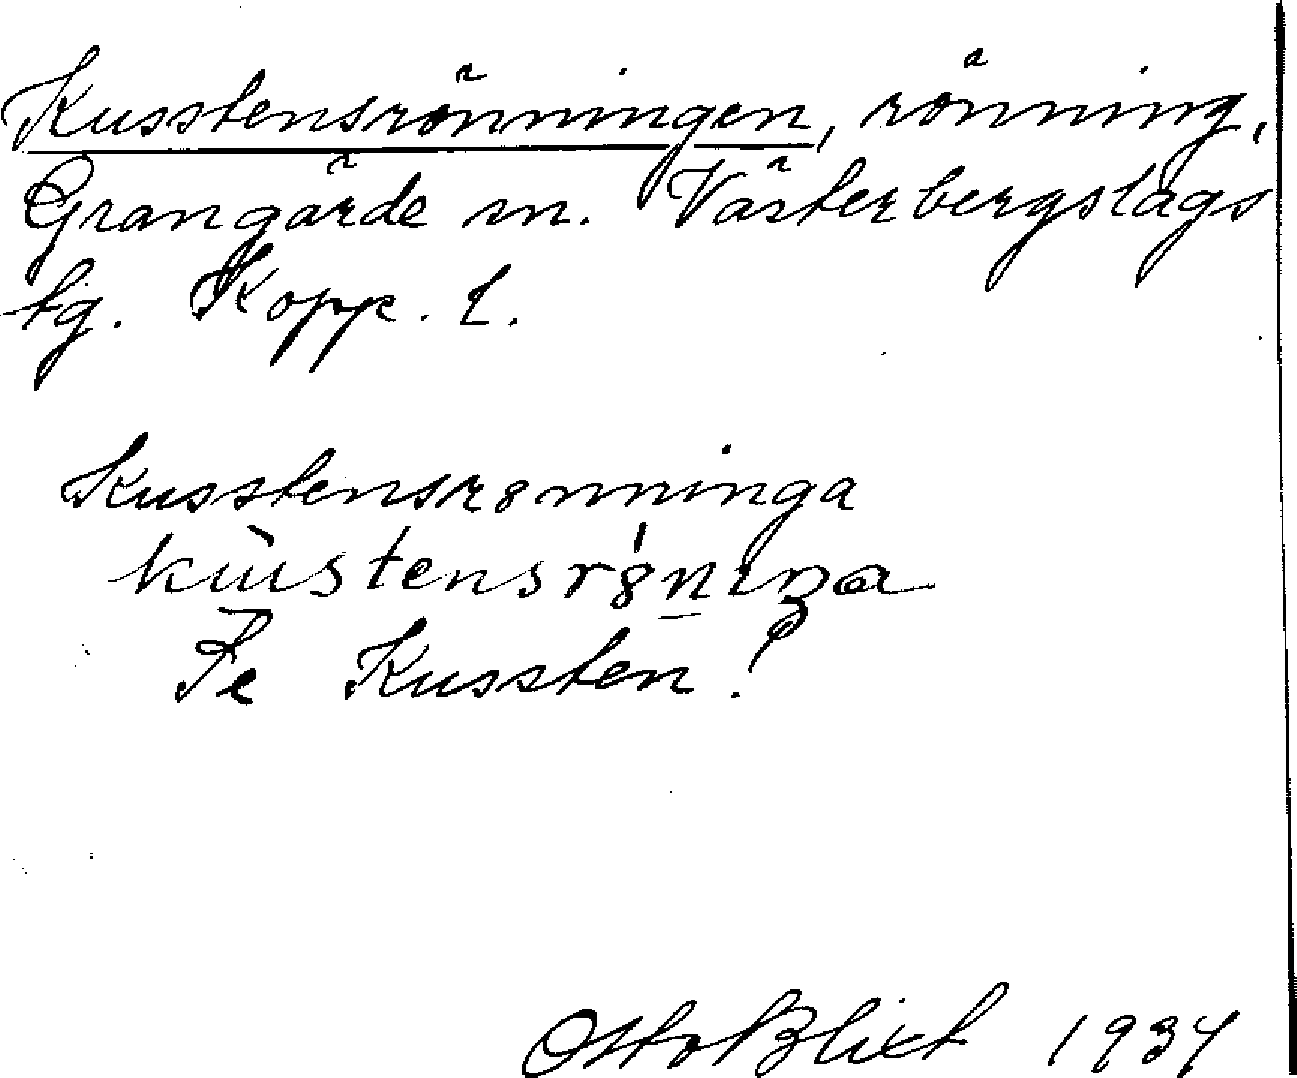 Kusstensrönningen, rönning,
Grangärde sn. Västerbergslags
tg. Kopp. l.
Kusstensrønninga
Se Kussten!
Otto Blixt 1934